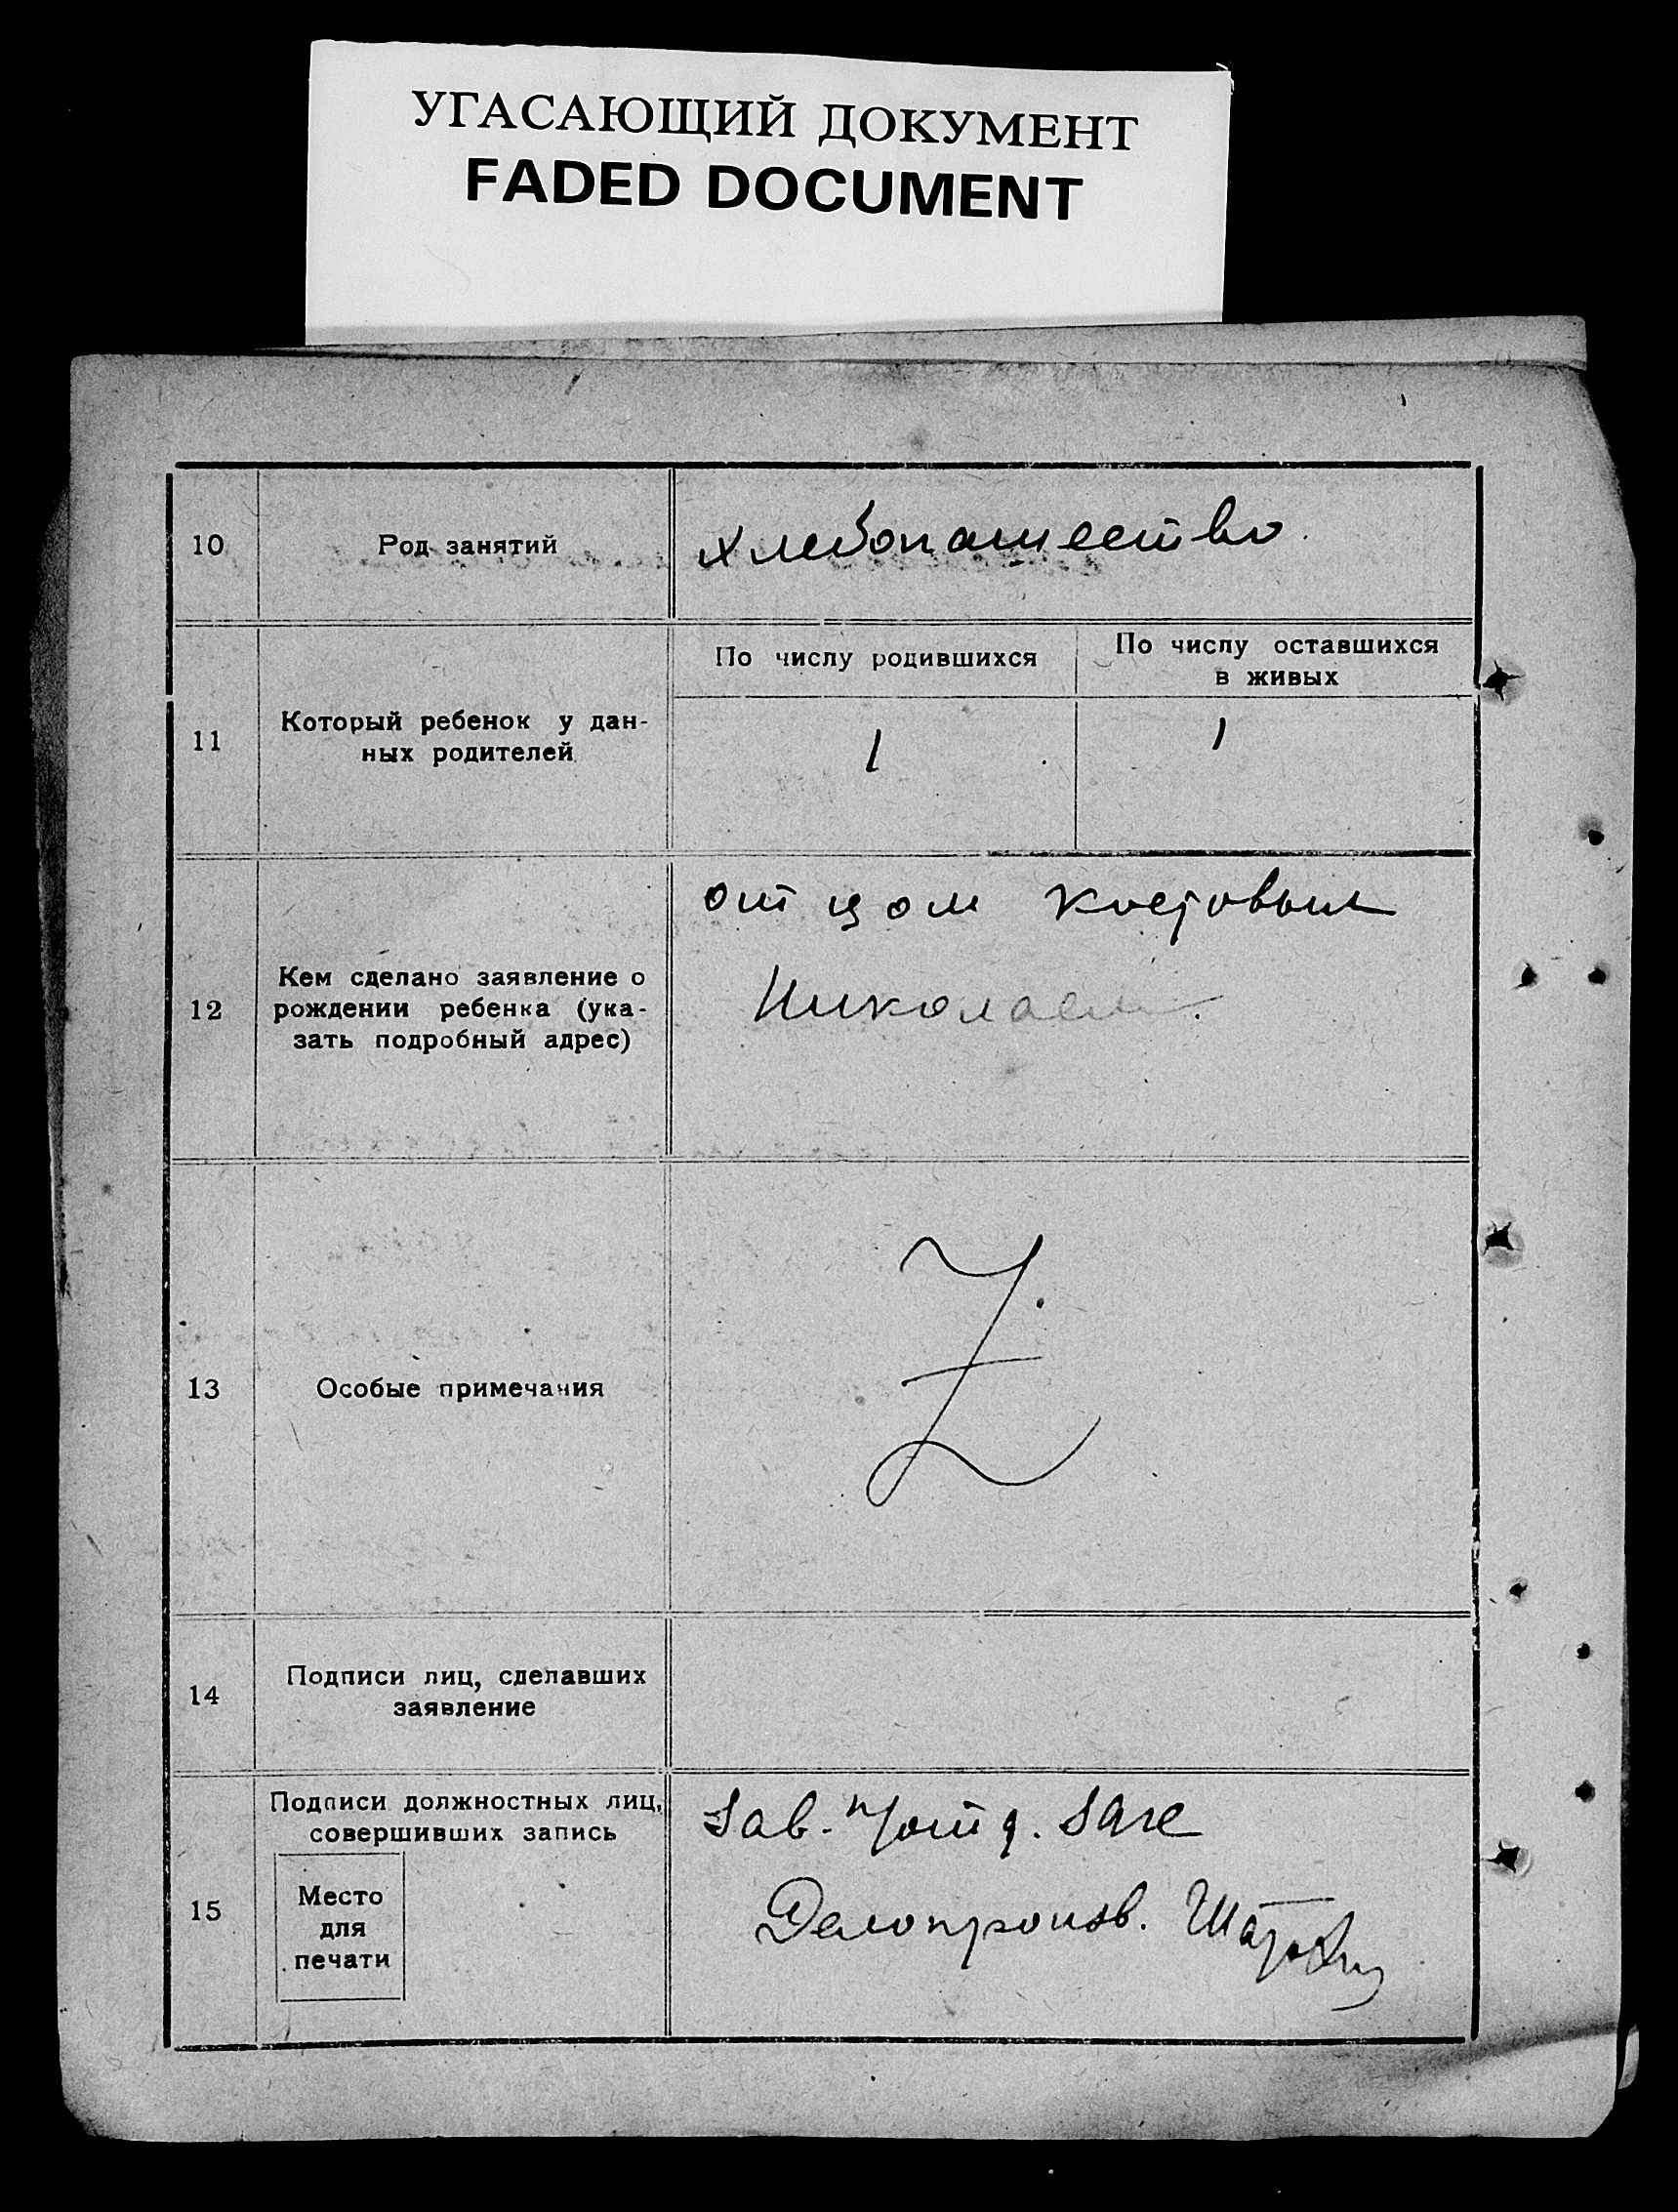 УГАСАЮЩИЙ ДОКУМЕНТ
FADED DOCUMENT
10
Род занятий
хлебопашество
11
Который ребенок у дан-
ных родителей
По числу родившихся
По числу оставшихся
в живых
1
1
12
Кем сделано заявление о
рождении ребенка (ука-
зать подробный адрес)
отцом
Николаем
13
Особые примечания
Z
14
Подписи лиц, сделавших
заявление
15
Подписи должностных лиц,
совершивших запись
Место
для
печати
Зав.
Делопроизв.